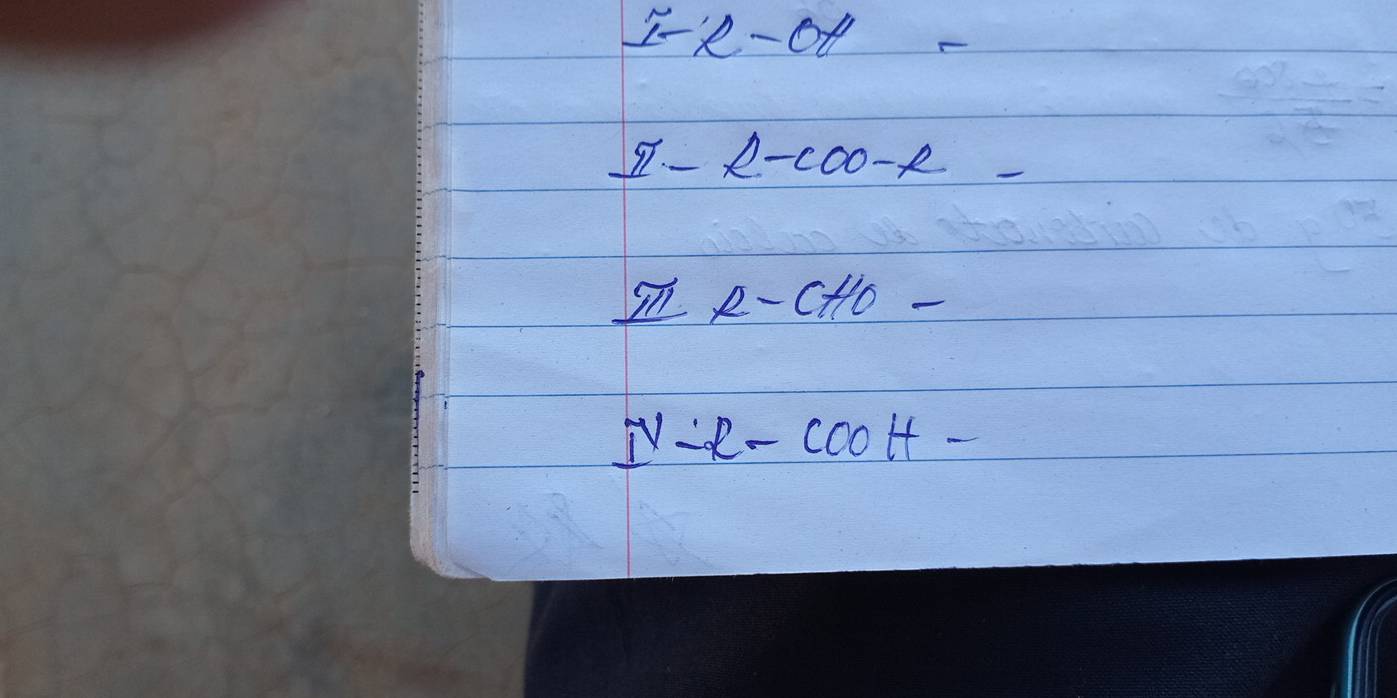 I - R - OH -
II - R - COO - R -
III R - CHO -
IV - R - COOH -